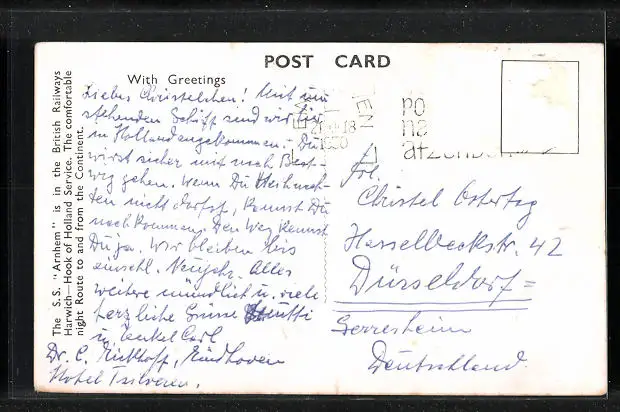 POST CARD
With Greetings
The S.S. "Arnhem" is in the British Railways
Harwich—Hook of Holland Service. The comfortable
night Route to and from the Continent.
Liebes Christelchen! Mit
stehenden Schiff sind wir hier
in Holland angekommen. Du
wirst sicher mit nach Best-
wig gehen. Wenn Du Weihnach-
ten nicht darfst, kannst Du
nachkommen. Den Weg kennst
Du ja. Wir bleiben bis
einschl. Neujahr. Alles
weitere mündlich u. viele
herzliche Grüsse Mutti
u. Onkel Carl
Dr. C. Eindhoven
Hotel
po
na
Frl.
Christel Ostertag
Hasselbeckstr. 42
Düsseldorf=
Gerresheim
Deutschland.